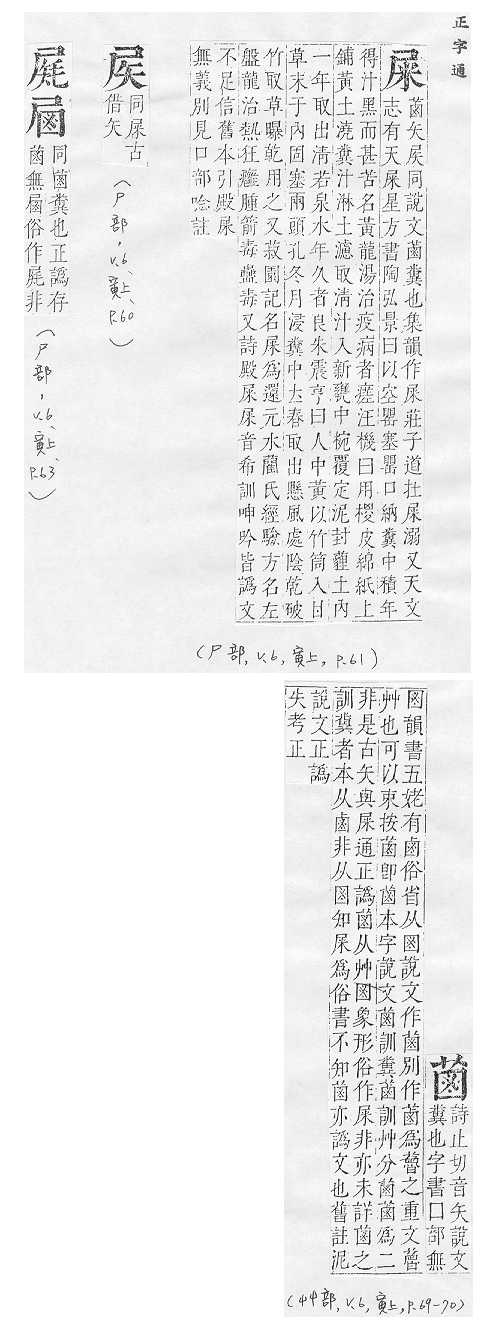 正字通
屎
菡矢㞏同說文菡糞也集韻作𡱁莊子道在屎溺又天文
志有天屎星方書陶弘景曰以空罌塞罌口納糞中積年
得汁黑而甚苦名黃龍湯治疫病者瘥汪機曰用椶皮綿紙上
鋪黃土澆糞汁淋土濾取清汁入新甕中椀覆定泥封薶土內
一年取出清若泉水年久者良朱震亨曰人中黃以竹筒入甘
草末于內固塞兩頭孔冬月浸糞中立春取出懸風處陰乾破
竹取草曝乾用之又菽園記名尿為還元水藺氏經驗方名左
盤龍治熱狂癰腫箭毒蠱毒又詩殿屎屎音希訓呻吟皆譌文
不足信舊本引殿屎
無義別見口部唸註
(尸部, v.6, 寅上, p.61)
同屎古
借矢
(尸部, v.6, 寅上, p.60)
同菌糞也正譌存
菌無屇俗作屍非
(尸部, v.6, 寅上, p.63)
詩止切音矢說文
糞也字書口部無
囦韻書五姥有鹵俗省从囦說文作菌別作菌為䕩之重文䕩
艸也可以束按菌卽菌本字說文菌訓糞菌訓艸分菌菌為二
非是古矢與屎通正譌菌从艸囦象形俗作屎非亦未詳菌之
訓糞者本从鹵非从囦知屎為俗書不知菌亦譌文也舊註泥
說文正譌
失考正
(艸部, v.6, 寅上, p.69-70)